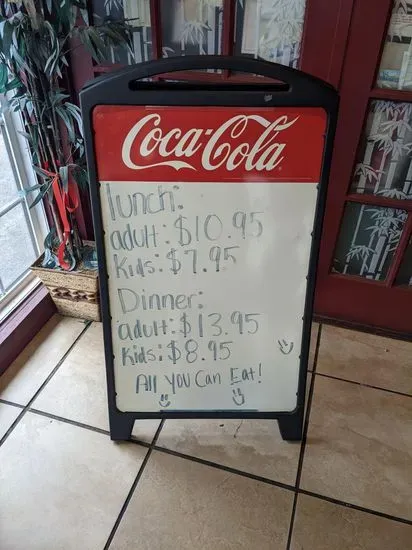 Coca-Cola
lunch:
adult: $10.95
Kids: $7.95
Dinner:
adult: $13.95
Kids: $8.95
All You Can Eat!